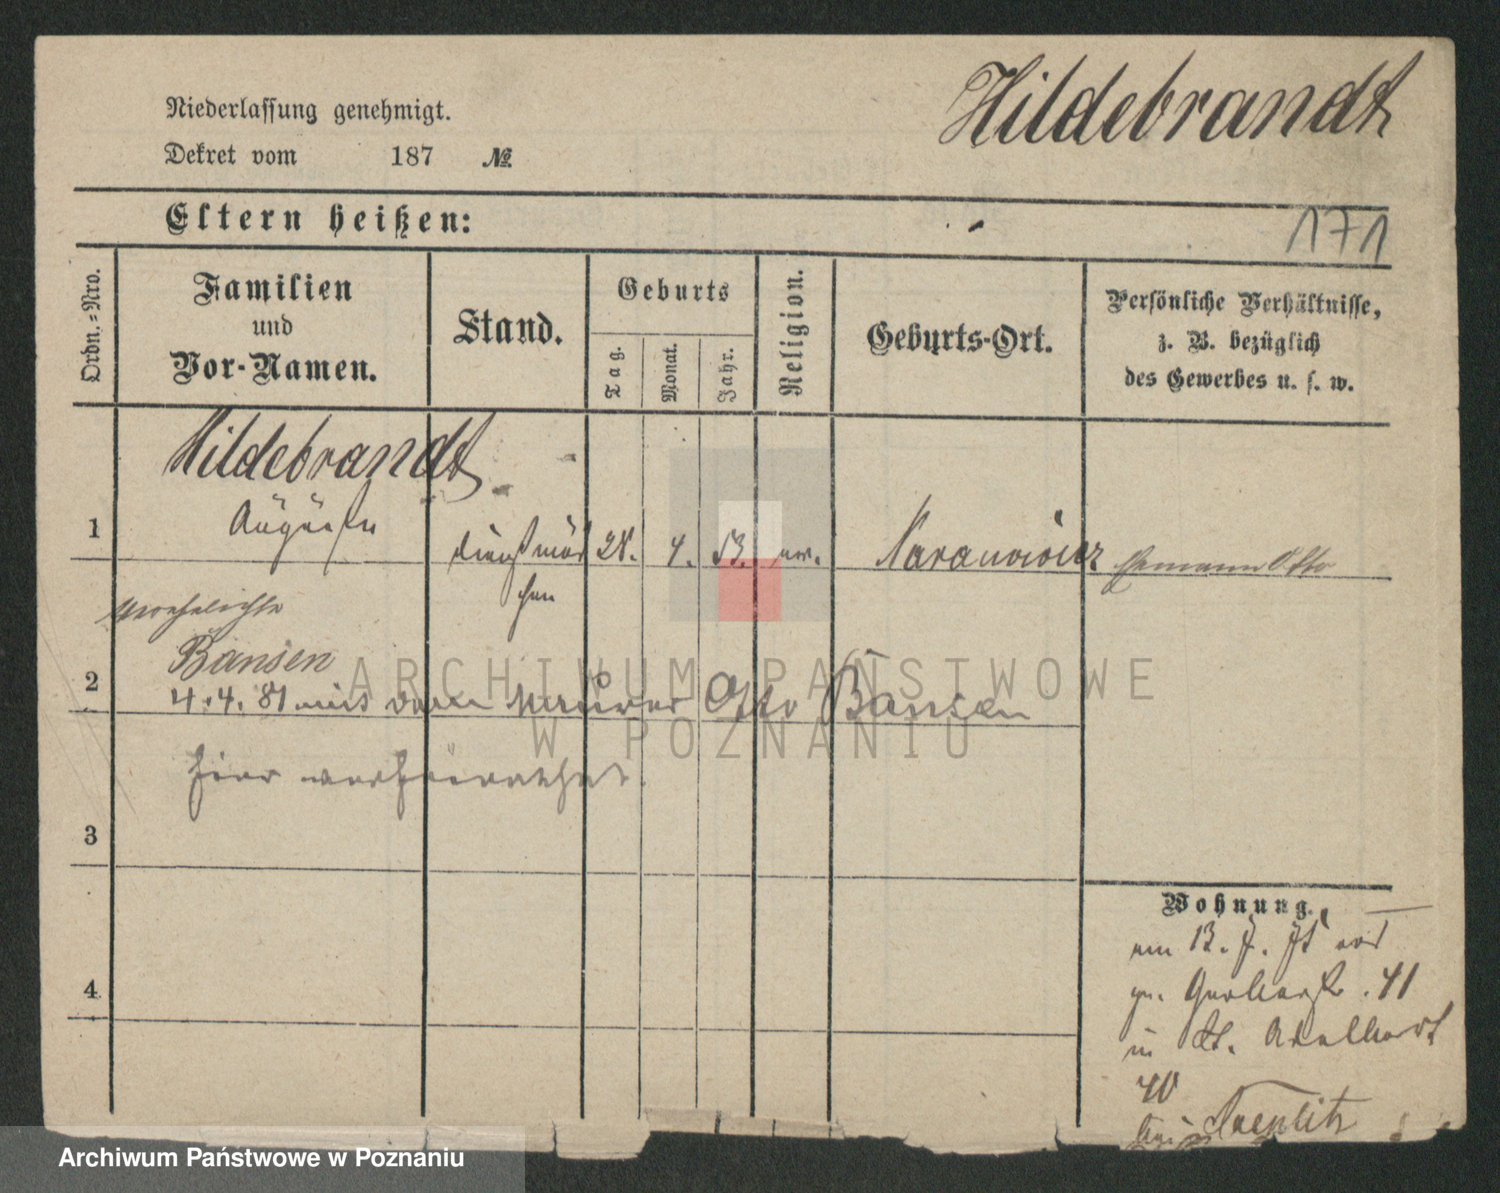 Hildebrandt
Niederlassung genehmigt.
Dekret vom 187 №
Eltern heißen:
171
Ordn.-Nro.
Familien
und
Vor-Namen.
Stand.
Geburts
Tag.
Monat.
Jahr.
Religion.
Geburts-Ort.
Persönliche Verhältnisse,
z. B. bezüglich
des Gewerbes u. s. w.
Hildebrandt
1 Auguste Dienstmäd 28. 4. 53. ev. Naranowicz Ehemann Otto
chen
verehelichte
2 Bansen
4.4.81 mit dem Maurer Otto Bansen
hier verheirathet.
3
4
Wohnung.
am 13. 7. 75 von
gr. Gerberstr. 41
in St. Adalbert
40
bei Treplitz
ARCHIWUM PAŃSTWOWE
W POZNANIU
Archiwum Państwowe w Poznaniu